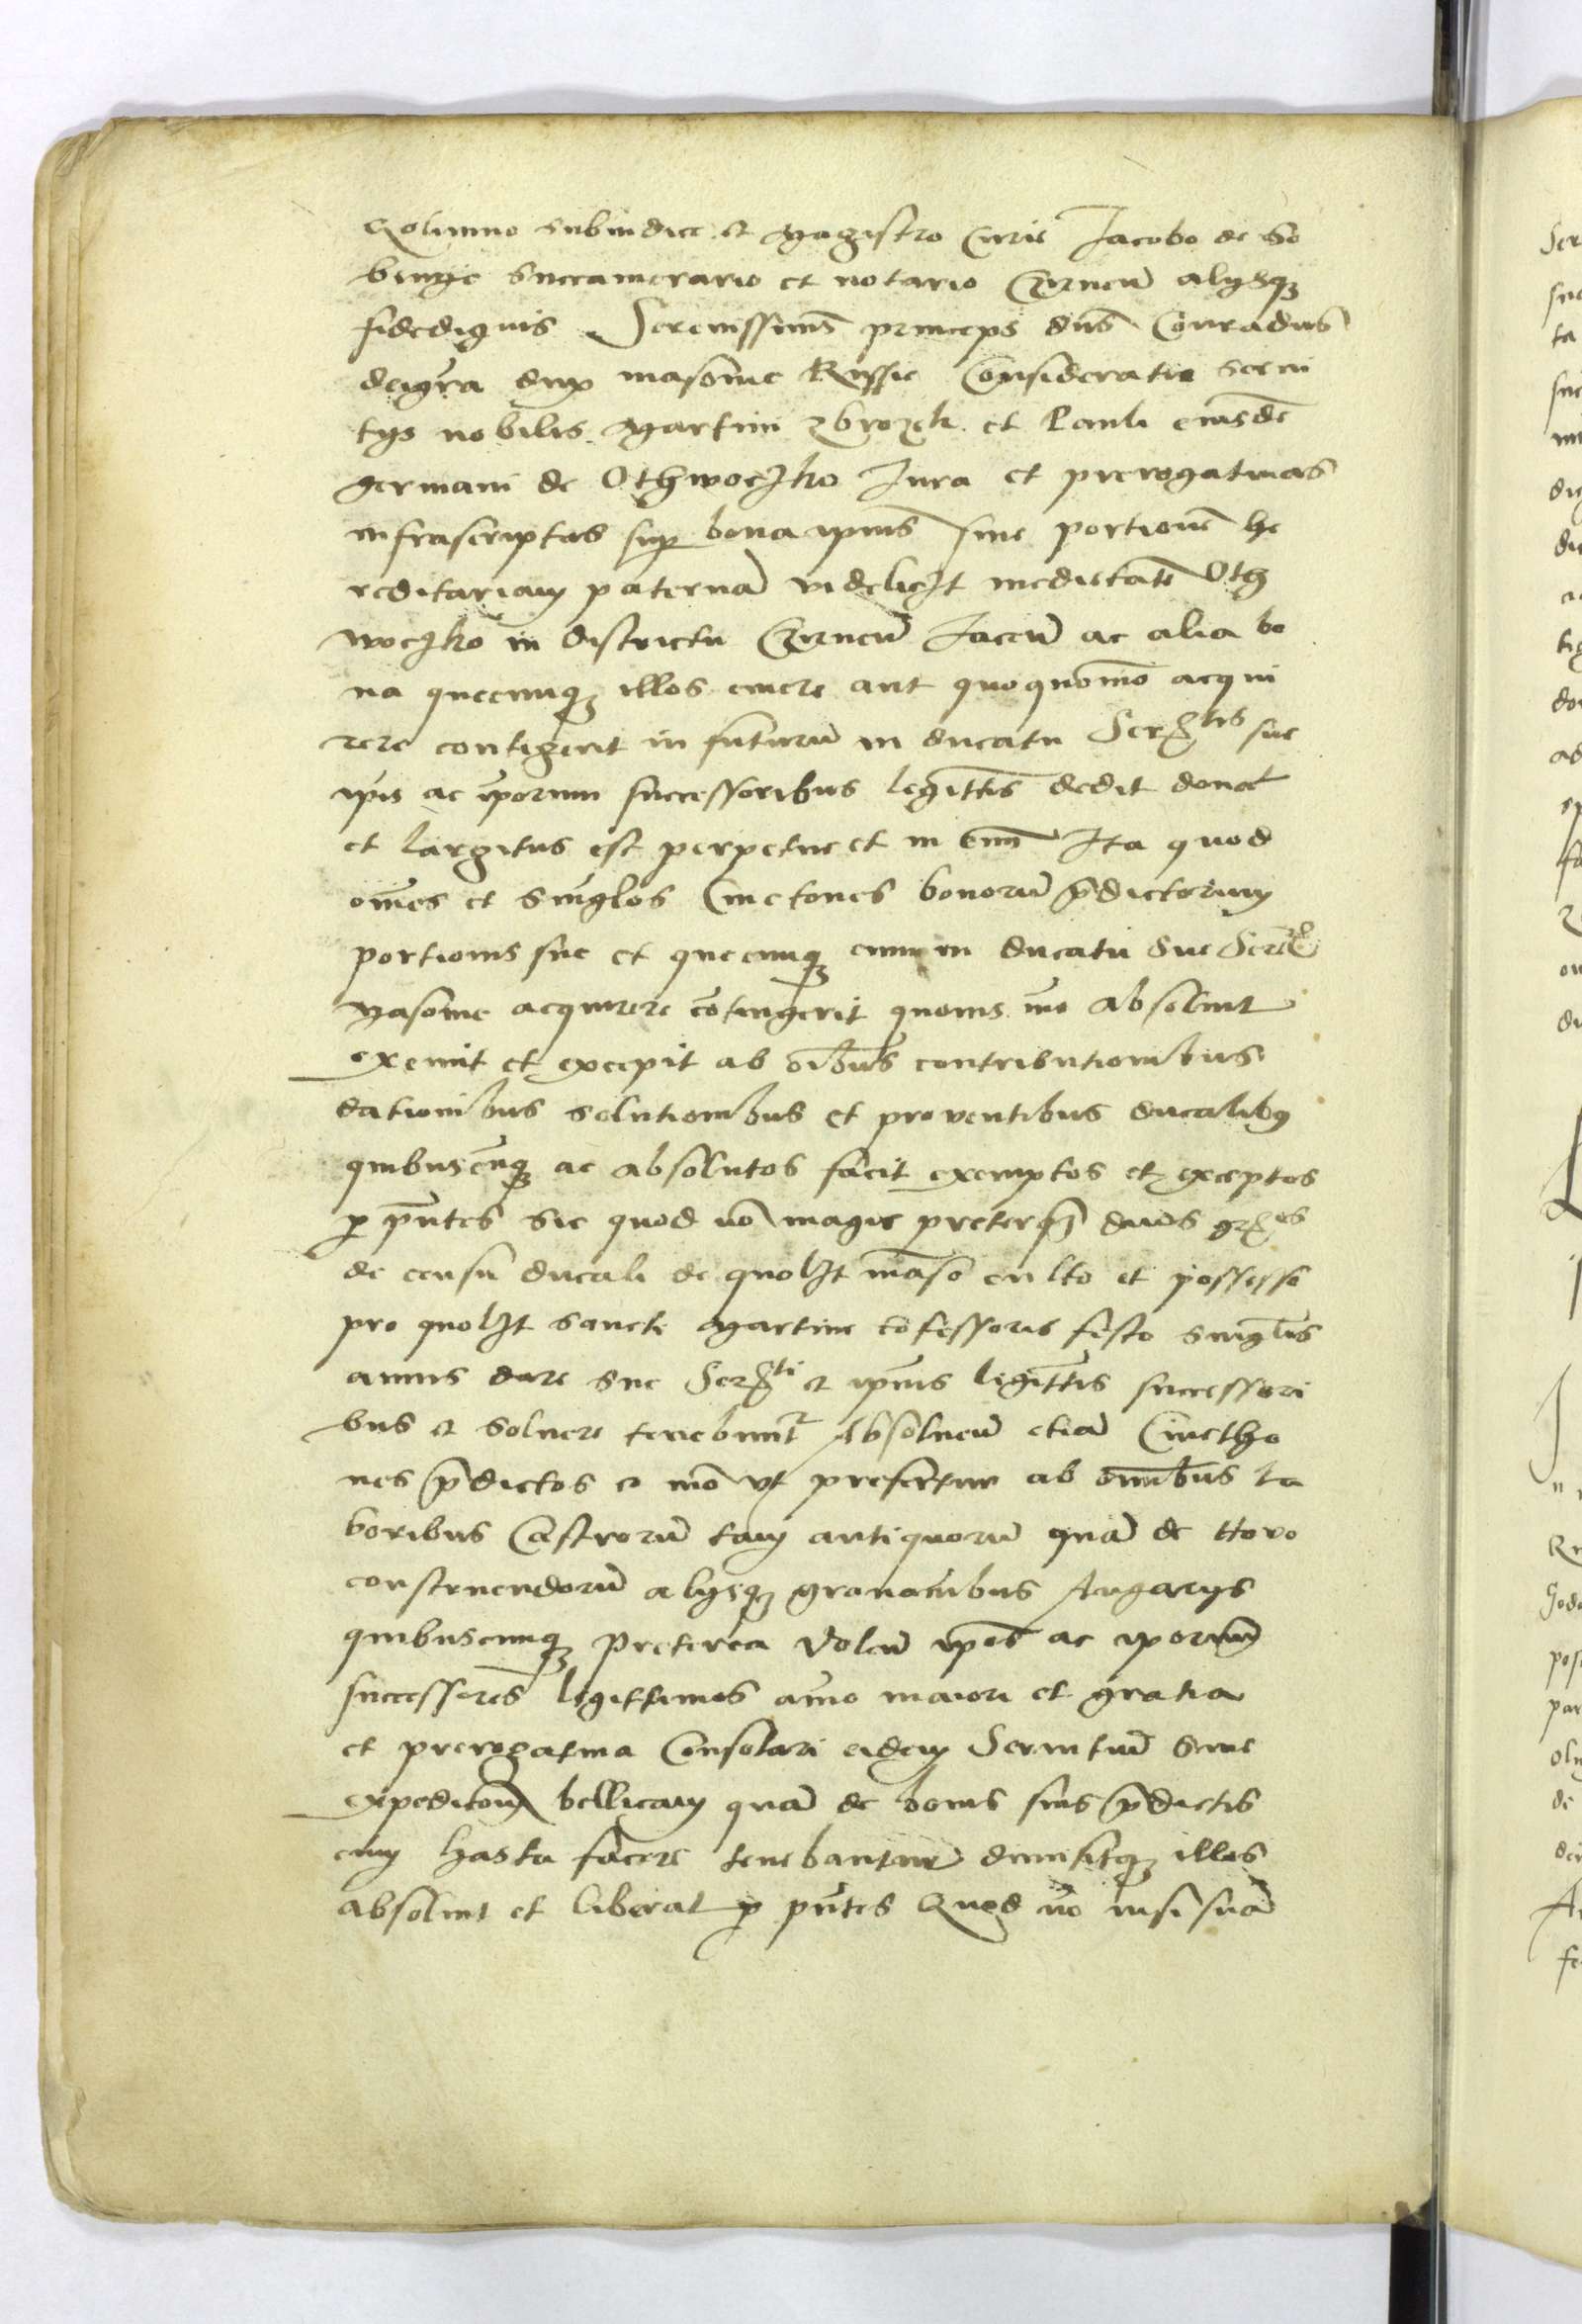 Golimino subiudice et Magistro Curie Jacobo de So
benye Succamerario et notario Czirneñ alysqz
fidedignis. Serenissimus princeps dns Conradus
deigra dux masovie Russie Consideratis servi
tys nobilis Martini zbrozek et Pauli eiusdē
germani de Othwoczko Jura et prerogativas
infrascriptas sup bona ipius sive portionē he
reditariam paternā videliczt medietatē Oth
woczko in districtu Czirneñ Jaceñ ac alia bo
na quecumqz illos emere aut quoquomō acqui
rere contigerit in futurū in ducatu Serᵗⁱˢ sue
ipis ac iporum successoribus legittis dedit donat
et largitus est perpetue et in evm̄ Ita quod
om̄es et singlos Cmetones bonorū p̄dictorum
portionis sue et quecumqz eum in ducatu Sue Seretᵗⁱˢ
Masovie acquirere cōtingerit quovis mō absolvit
exemit et excepit ab oibus contributionibus
dationibus solutionibus et proventibus ducalibꝰ
quibuscūqz ac absolutos facit exemptos et exceptos
p p̄ntes Sic quod nō magis preterqz duos grᵒˢ
de censu ducali de quolzt māso culto et possesso
pro quolzt sancti Martini cōfessoris festo singlis
annis dare sue Serᵗⁱ et ipius legittis successori
bus et solvere tenebuntr Absolveñ etiā Cmetho
nes p̄dictos eo mō vt prefertur ab omibus la
boribus Castrorū tam antiquorū quā de Novo
construendorū alysqz gravaībus Angarys
quibuscumqz Preterea Voleñ ipos ac iporum
successores legittimos aīmo maiori et gratia
et prerogativa Consolari eidem Servitiū Sive
expeditōm bellicam quā de bonis suis p̄dictis
cum hasta facere tenebantur dimisitqz illos
absolvit et liberat p p̄ntes Quod vo nisi suā